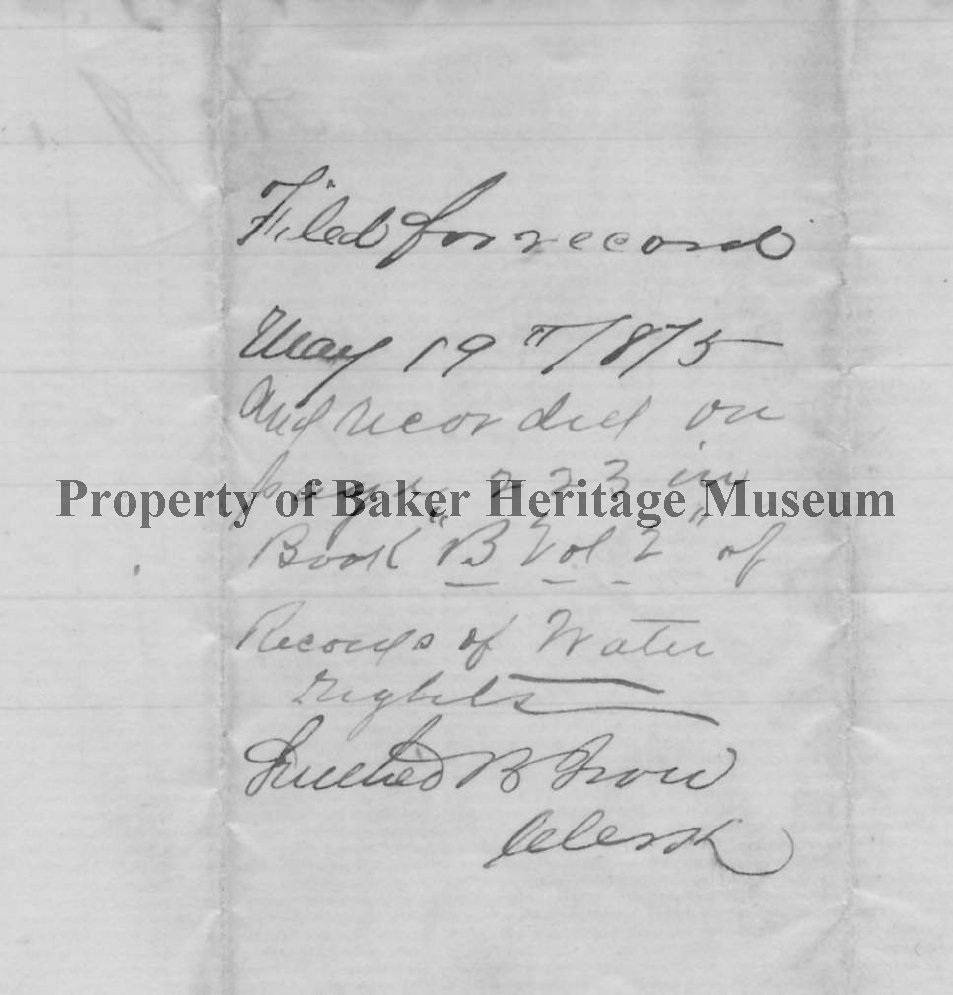 Filed for record
May 19th 1875
And recorded on
page 223 in
Property of Baker Heritage Museum
Book "B Vol 2" of
Records of Water
Rights
Luther B Ison
Clerk